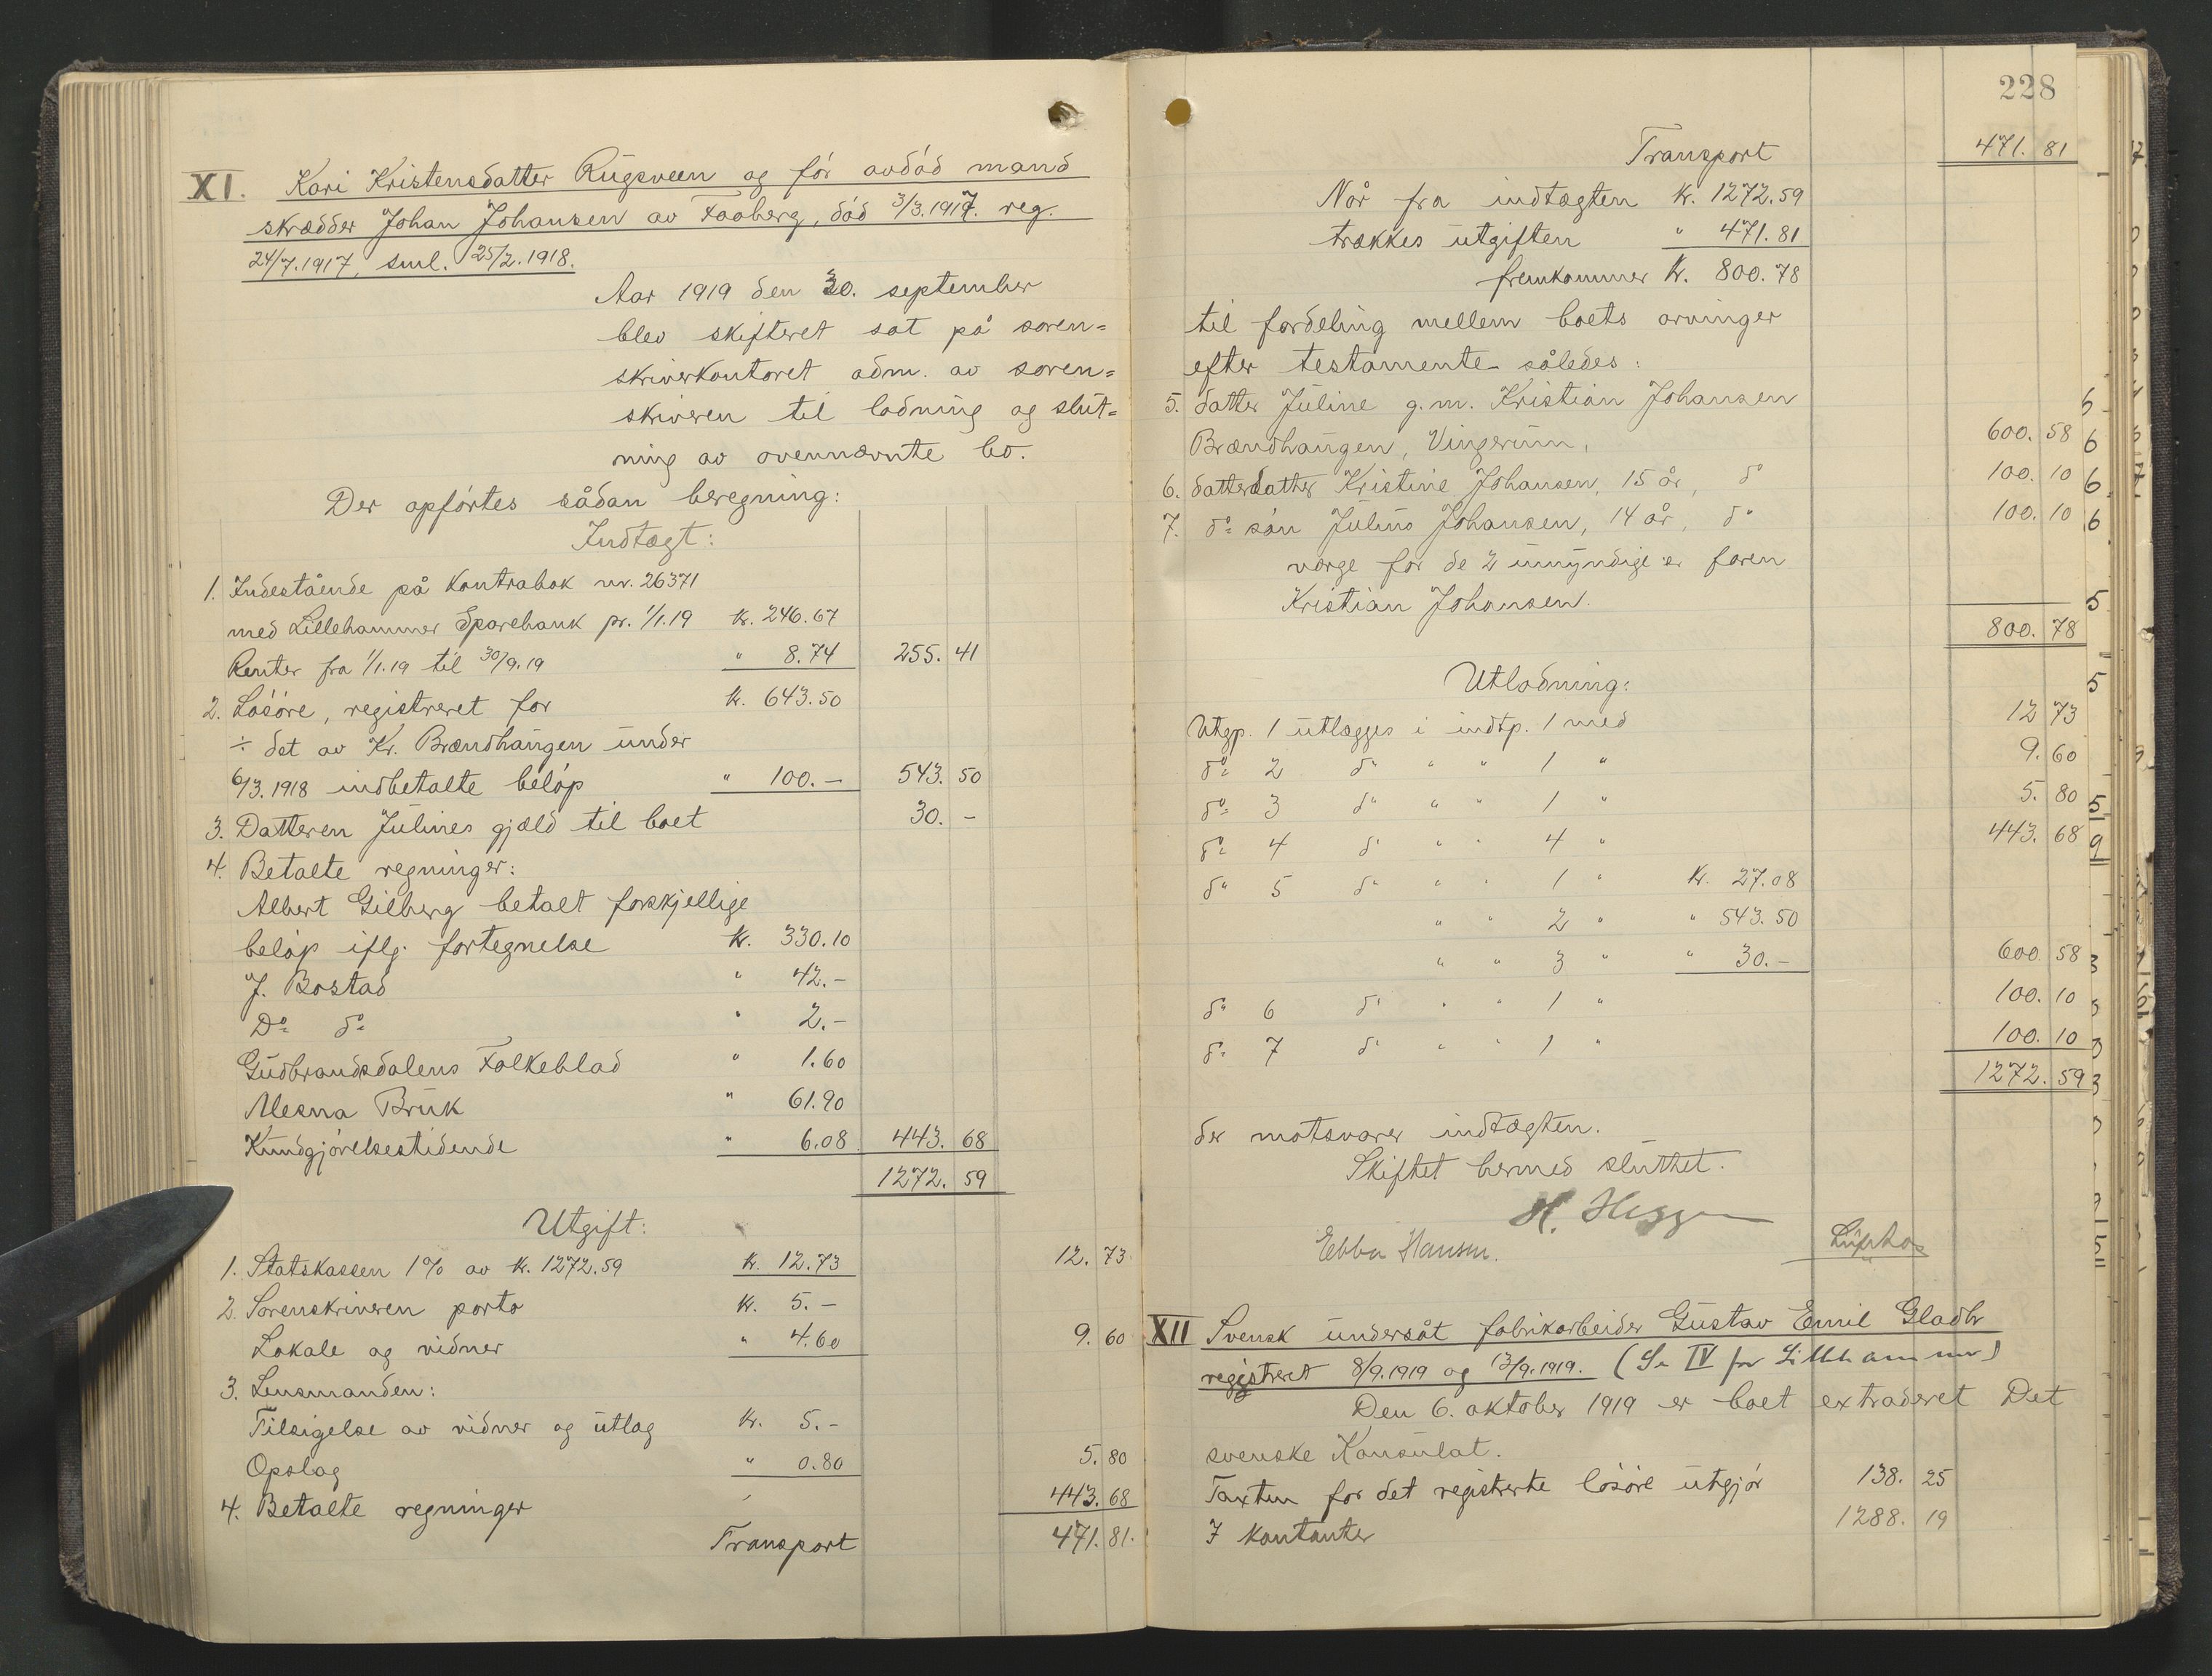 XI. Kari Kristensdatter Rugsveen og før avdød mand
skrædder Johan Johansen av Faaberg, død 3/3.1917. reg.
24/7.1917, sml. 25/2.1918.
Aar 1919 den 30. september
blev skifteret sat på soren=
skriverkontoret adm. av soren=
skriveren til lodning og slut=
ning av ovennævnte bo.
Der opførtes sådan beregning:
Indtægt:
1. Indestående på kontrabok nr. 26371
med Lillehammer Sparebank pr. 1/1.19 kr. 246.67
Renter fra 1/1.19 til 30/9.19 " 8.74 255.41
2. Løsøre, registreret for kr. 643.50
÷ det av Kr. Brændhaugen under
6/3.1918 indbetalte beløp " 100.– 543.50
3. Datteren Julines gjæld til boet 30.–
4. Betalte regninger:
Albert Gilberg betalt forskjellige
beløp iflg. fortegnelse kr. 330.10
J. Bostad " 42.–
Do do " 2.–
Gudbrandsdalens Folkeblad " 1.60
Mesna Bruk " 61.90
Kundgjørelsestidende " 6.08 443.68
1272.59
Utgift:
1. Statskassen 1% av kr. 1272.59 kr. 12.73 12.73
2. Sorenskriveren porto kr. 5.–
Lokale og vidner " 4.60 9.60
3. Lensmanden:
Tilsigelse av vidner og utlæg kr. 5.–
Opslag " 0.80 5.80
4. Betalte regninger 443.68
Transport 471.81.
228
Transport 471.81
Når fra indtægten kr. 1272.59
trækkes utgiften " 471.81
fremkommer kr. 800.78
til fordeling mellem boets arvinger
efter testamente således:
5. datter Juline g.m. Kristian Johansen
Brændhaugen, Vingerum, 600.58
6. datterdatter Kristine Johansen, 15 år, do 100.10
7. do søn Julius Johansen, 14 år, do 100.10
værge for de 2 umyndige er faren
Kristian Johansen.
800.78
Utlodning:
Utgp. 1 utlægges i indtp. 1 med 12 73
do 2 do " " 1 " 9.60
do 3 do " " 1 " 5.80
do 4 do " " 4 " 443.68
do 5 do " " 1 " kr. 27.08
" " 2 " " 543.50
" " 3 " " 30.– 600.58
do 6 do " " 1 " 100.10
do 7 do " " 1 " 100.10
1272.59
der motsvarer indtægten.
Skiftet hermed sluttet.
H. Hegge
Ebba Hansen.
XII Svensk undersåt fabrikarbeider Gustav Emil Gladh
registrert 8/9.1919 og 13/9.1919. (Se IV for Lillehammer)
Den 6. oktober 1919 er boet extraderet Det
svenske Konsulat.
Taxten for det registrerte løsøre utgjør 138.25
I kontanter 1288.19